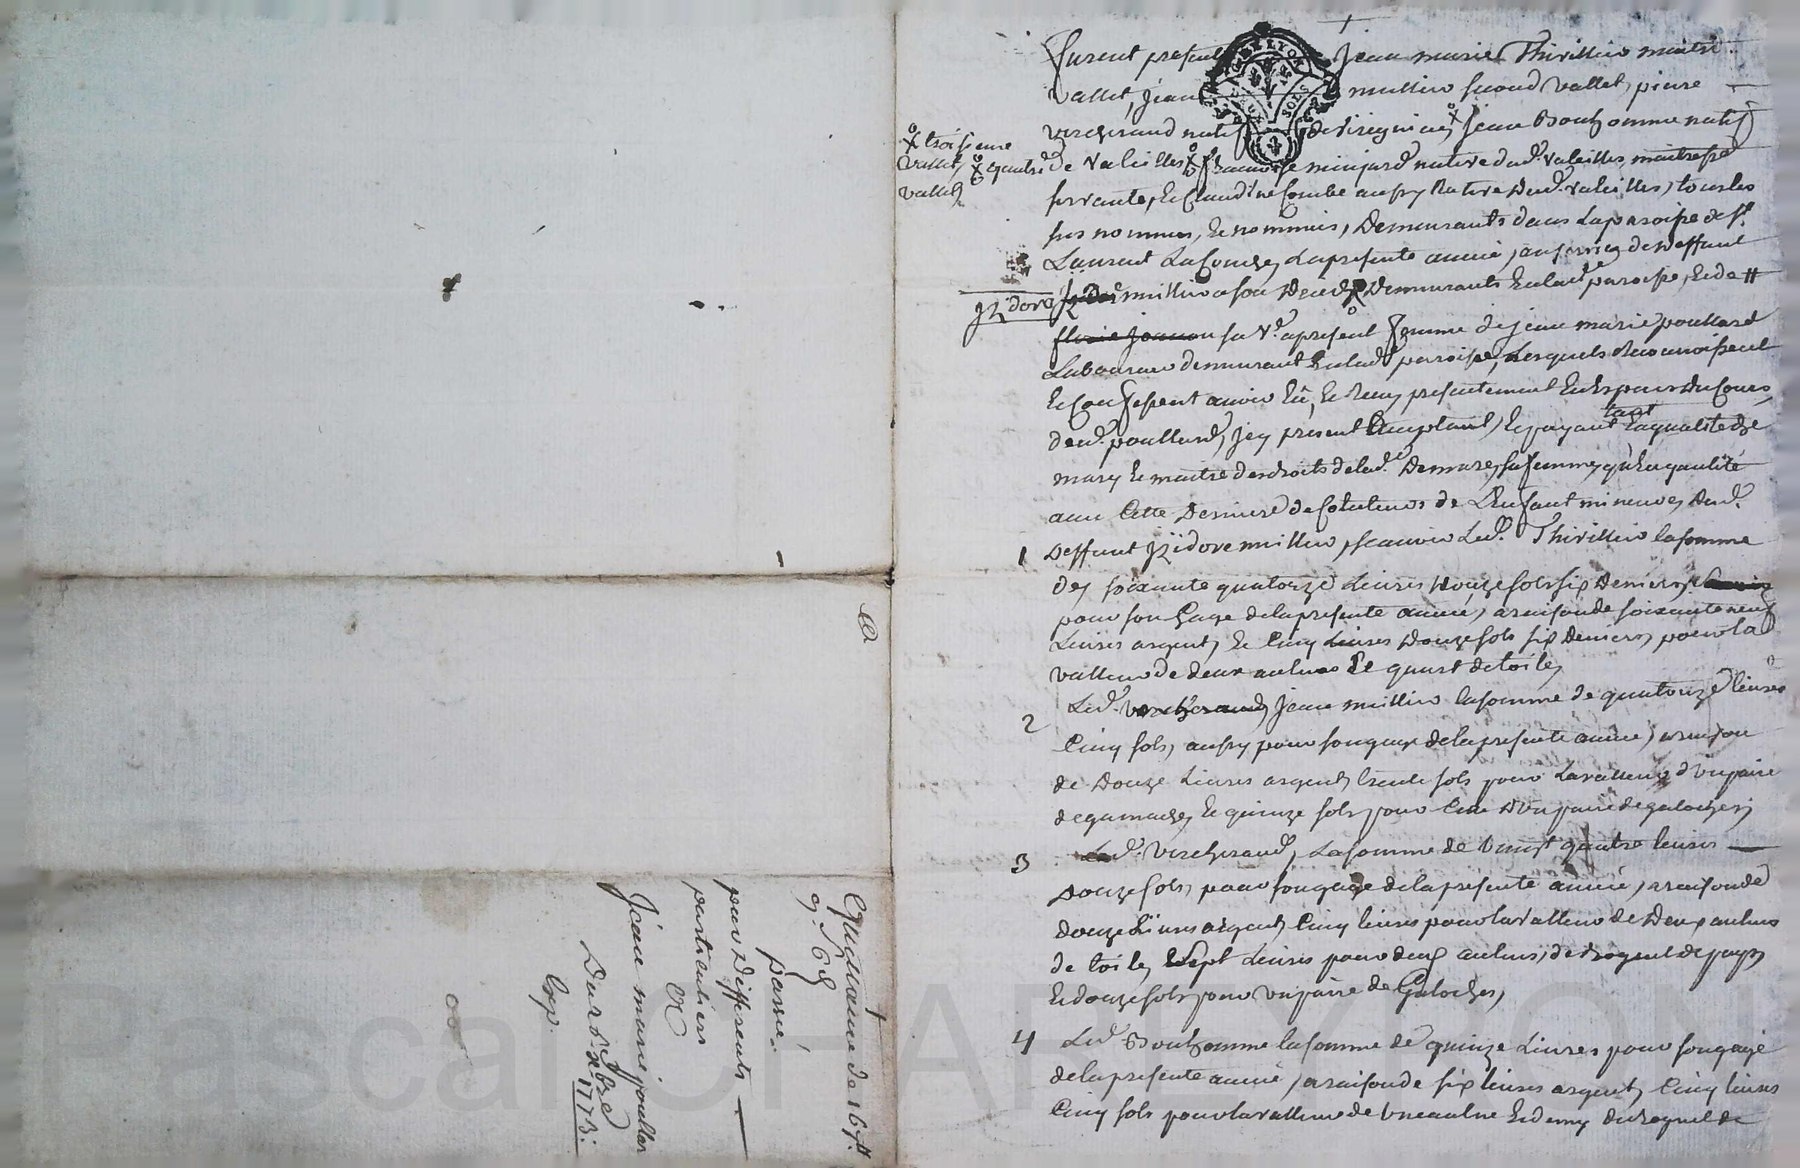 Furent present Jean marie Thivillier maitre
vallet, Jean mullier second vallet, pierre
vercherand natif de virigneu, Jean Bonhomme natif
troisieme
vallet quatre
vallet
de valeilles françoise minjard native dud. valeilles, maitresse
servante, et Claudine Combe aussy Native dud. valeilles, tous les
sus nommés, et nommées, Demeurants dans la paroisse de st.
Laurent La Conche, la presente année, au service de deffunt
Izidore
mullier a son deced Demeurants en lad. paroisse, et de
sa ve. apresent femme de jean marie poullard
Laboureur demeurant en lad. paroisse, Lesquels Reconnoissent
et Confessent avoir Eû, et Reçu presentement Endespuis du Cours,
dud. poullard, icy present acceptant, et payant tant En qualité de
mary et maitre des droits de lad. sa femme, qu'En qualité
avec Cette derniere de Cotuteurs de L'Enfant mineur, dud.
1 Deffunt Izidore mullier, scavoir Led. Thivillier la somme
de soixante quatorze Livres Douze sols six Deniers
pour son gage de la presente année, a raison de soixante neuf
Livres argent, et Cinq Livres Douze sols six Deniers, pour la
valleur de deux aulnes et quart de toile,
2 Led. Jean mullier la somme de quatorze livres
Cinq sols, aussy pour son gage de la presente année, a raison
de Douze Livres argent, trente sols pour La valleur d'un paire
de gamache, et quinze sols pour Celle d'un paire de galoches,
3 Led. Vercherand, La somme de vingt quatre livres
Douze sols, pour son gage de la presente année, a raison de
douze Livres argent, Cinq livres pour la valleur de Deux aulnes
de toile, sept Livres pour deux aulnes, de droguet de pays
et douze sols pour un paire de Galoches,
4 Led. Bonhomme la somme de quinze Livres pour son gage
de la presente année, a raison de six livres argent, Cinq livres
Cinq sols pour la valleur de une aulne et demy de droguet de
Quittance de 167
passé
par Differents
particuliers
a
Jean marie poullar
Du
1773.
Exp.